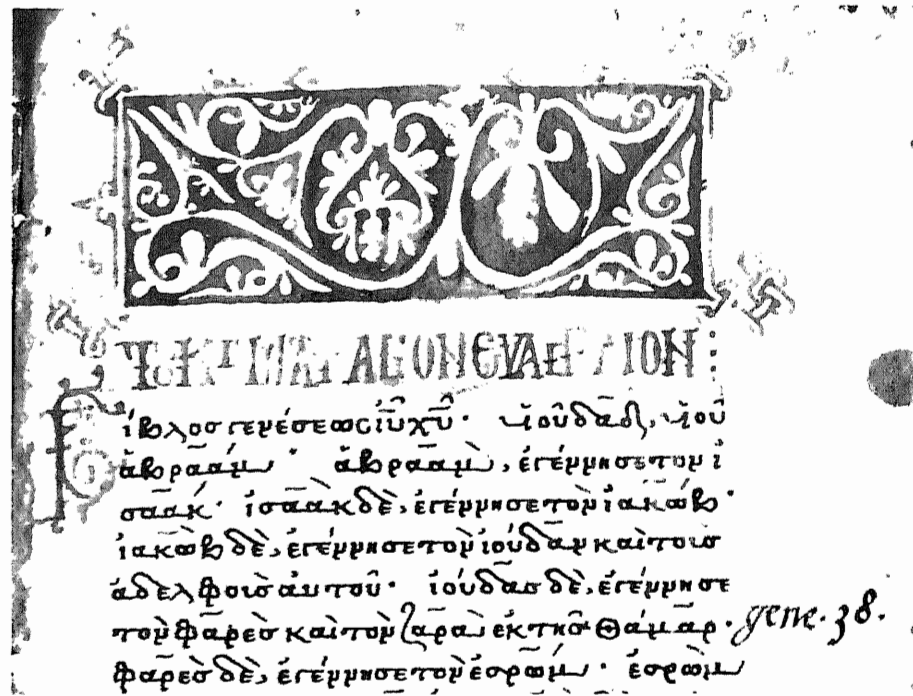 ΑΓΙΟΝ ΕΥΑΓΓΕΛΙΟΝ:
ίβλος γενέσεως ἰῡ χῡ· ὑιοῦ δᾱδ, ὑιοῦ
ἀβραάμ· ἀβραὰμ, ἐγέννησε τὸν ἰ
σαάκ· ἰσαὰκ δὲ, ἐγέννησε τὸν ἰακώβ·
ἰακὼβ δὲ, ἐγέννησε τὸν ἰούδαν καὶ τοὺς
ἀδελφοὺς ἀυτοῦ· ἰούδας δὲ, ἐγέννησε
τὸν φαρὲς καὶ τὸν ζαρὰ ἐκ τῆς θάμαρ· gene. 38.
φαρὲς δὲ, ἐγέννησε τὸν ἐσρώμ· ἐσρὼμ